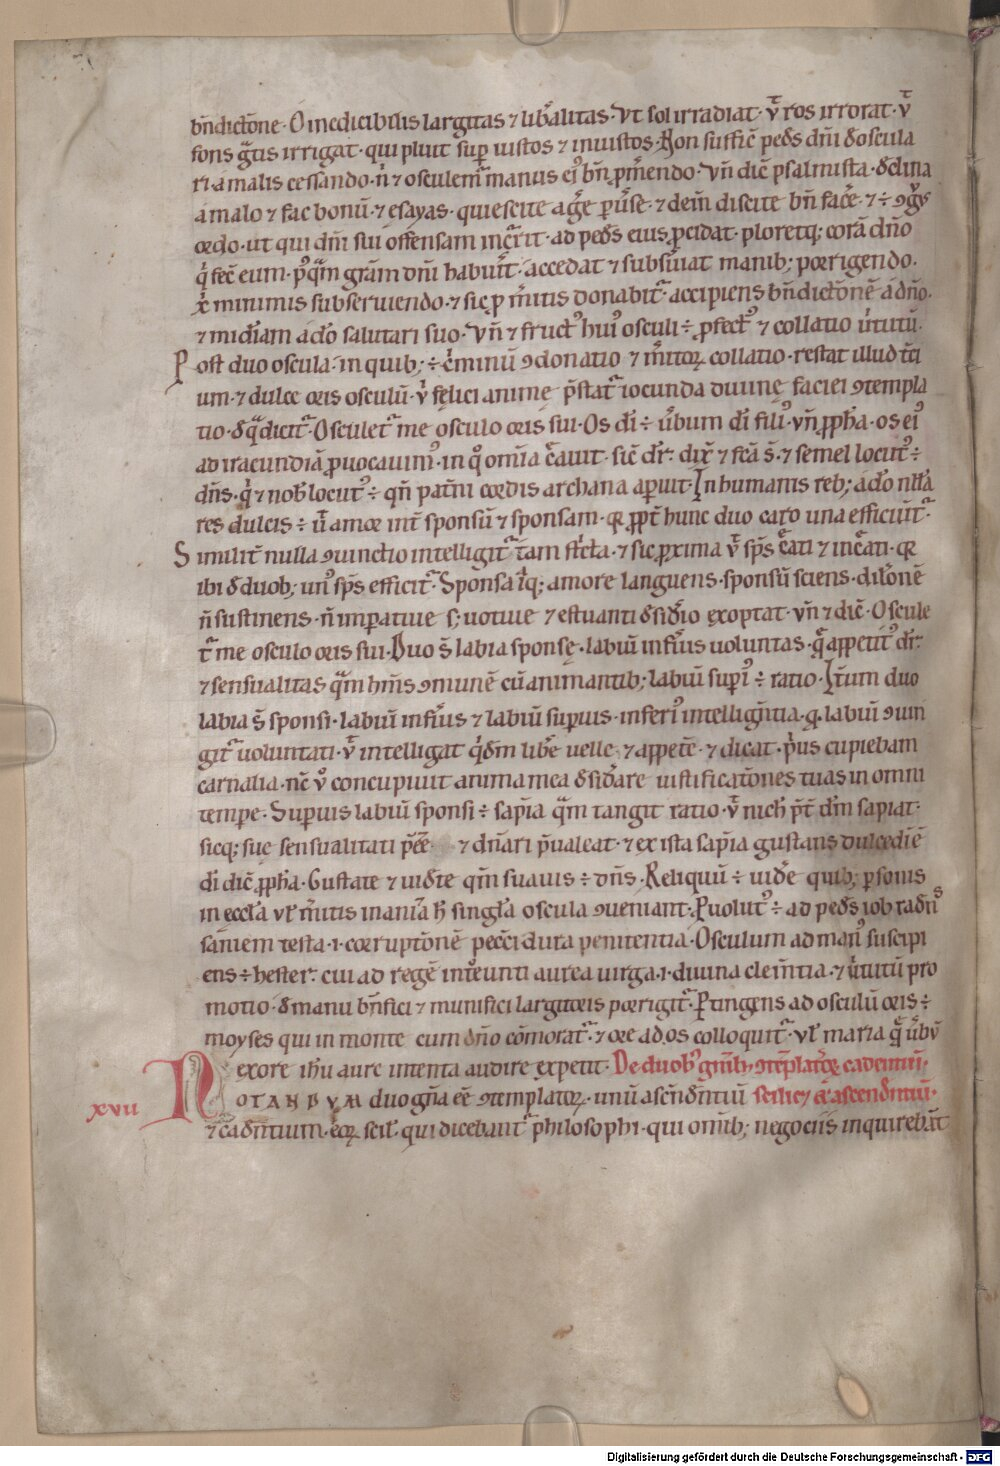 bn̄dictōne· O inedicibilis largitas ⁊ lib̄alitas· Vt sol irradiat· v̄ ros irrorat· v̄
fons gr̄tis irrigat· qui pluit sup̄ iustos ⁊ iniustos· Non suffic̄ ped̄s dn̄i deoscula
ri a malis cessando· n̄ ⁊ osculem̄ manus ei᾽ bn̄ p̄mendo· Vn̄ dic̄ psalmista· declina
a malo ⁊ fac bonū· ⁊ esayas· quiescite aḡe p̄u̅se· ⁊ dein̄ discite bn̄ fac̄e·
cedo· ut qui dn̄i sui offensam inc̄rit· ad ped̄s eius p̄cidat· ploretq; corā dn̄o
q̇ fec̄ eum· p᾽qᷓm grām dn̄i habuīt· accedat ⁊ subsūiat manib; porrigendo·
xp̄i minimis subseruiendo· ⁊ sic p̱ m̄itis donabit᷑ accipiens bn̄dictōnē a dn̄o·
⁊ mīdiam a dō salutari suo· Vn̄ ⁊ fruct᾽ hui᾽ osculi ÷ p̄fect᾽ ⁊ collatio ūtutū·
Post duo oscula· in quib; ÷ c̄minū ꝯdonatio ⁊ m̄itoꝝ collatio· restat illud t̄ci
um· ⁊ dulce oris osculū· q̇ felici animę p̄stat᷑ iocunda diuinę faciei ꝯtempla
tio· de qᷓ dicit᷑· Osculet᷑ me osculo oris sui· Os dī ÷ ūbum dī fili᾽· vn̄ p̄pha· os ei᾽
ad iracundiā p̄uocauim᾽· in q̊ om̄ia c̄auit· sic̄ dr̄· dix̄ ⁊ fc̄ā s̄· ⁊ semel locut᾽ ÷
dn̄s· q̇ ⁊ nob̄ locut᾽ ÷ qn̄ pat̄ni cordis archana apuit· In humanis reb; a dō nll̄a
res dulcis ÷ ū amor int̄ sponsū ⁊ sponsam· qꝛ p̄pt̄ hunc duo caro una efficiūt᷑·
Similit̄ nulla ꝯuinctio intelligit᷑ tam st̄cta· ⁊ sic p̄xima v̄ sp̄s c̄ati ⁊ inc̄ati· qꝛ
ibi de duob; un᾽ sp̄s efficit᷑· Sponsa itaq; amore languens· sponsū sciens· dil̄onē
n̄ sustinens· n̄ imp̱atiue s; uotiue ⁊ estuanti desid̄io exoptat· vn̄ ⁊ dic̄· Oscule
t᷑ me osculo oris sui· Duo s̄ labia sponsę· labiū infīus uoluntas· qᷓ appetit᾽ dr̄·
⁊ sensualitas qᷓm hm̄s ꝯmunē cū animantib; labiū supi᾽ ÷ ratio· It̄um duo
labia s̄ sponsi· labiū infīus ⁊ labiū sup̱ius· inferi᾽ intellig̅ntia· q̄ labiū ꝯuin
git᷑ uoluntati· v̄ intelligat q̇dm̄ lib̄e uelle ⁊ appetē ⁊ dicat· p̄us cupiebam
carnalia· nc̄ ū concupiuit anima mea desid̄are iustificatōnes tuas in omni
tempe· Sup̱ius labiū sponsi ÷ sapīa qᷓm tangit ratio· v̄ nich̄ p̄t̄ dm̄ sapiat·
sicq; sue sensualitati p̄ēe ⁊ dn̄ari p̄ualeat· ⁊ ex ista sapīa gustans dulcedīē
dī dic̄ p̄pha· Gustate ⁊ uidete qm̄ suauis ÷ dn̄s· Reliquū ÷ uid̄e quib; p̱sonis
in eccl̄a uł m̄itis in aniā h̄ singl̄a oscula ꝯueniant· Puolut᾽ ÷ ad ped̄s iob radn̄s
saniem testa· i· corruptōnē pecc̄i dura penitentia· Osculum ad man᾽ suscipi
ens ÷ hester· cui ad regē int̊eunti aurea uirga· i· diuina clem̄tia· ⁊ ūtutū pro
motio· de manu bn̄fici ⁊ munifici largitoris porrigit᷑· Ptingens ad osculū oris ÷
moyses qui in monte cum dn̄o cōmorat᷑· ⁊ ore ad os colloquit᷑· uł maria qᷓ ūbū
ex ore ih̄u aure intenta audire expetit· De duob᾽ gn̄ib; ꝯtēplatoꝝ cadentiū·
xvii NOTANDVM duo gn̄a eē ꝯtemplatoꝝ· unū ascn̄dn̄tiū scilic̄ ⁊ ascendn̄tiū·
⁊ cadn̄tium· eoꝝ scił qui dicebant᷑ philosophi· qui om̄ib; negociis inquirebāt
Digitalisierung gefördert durch die Deutsche Forschungsgemeinschaft - DFG